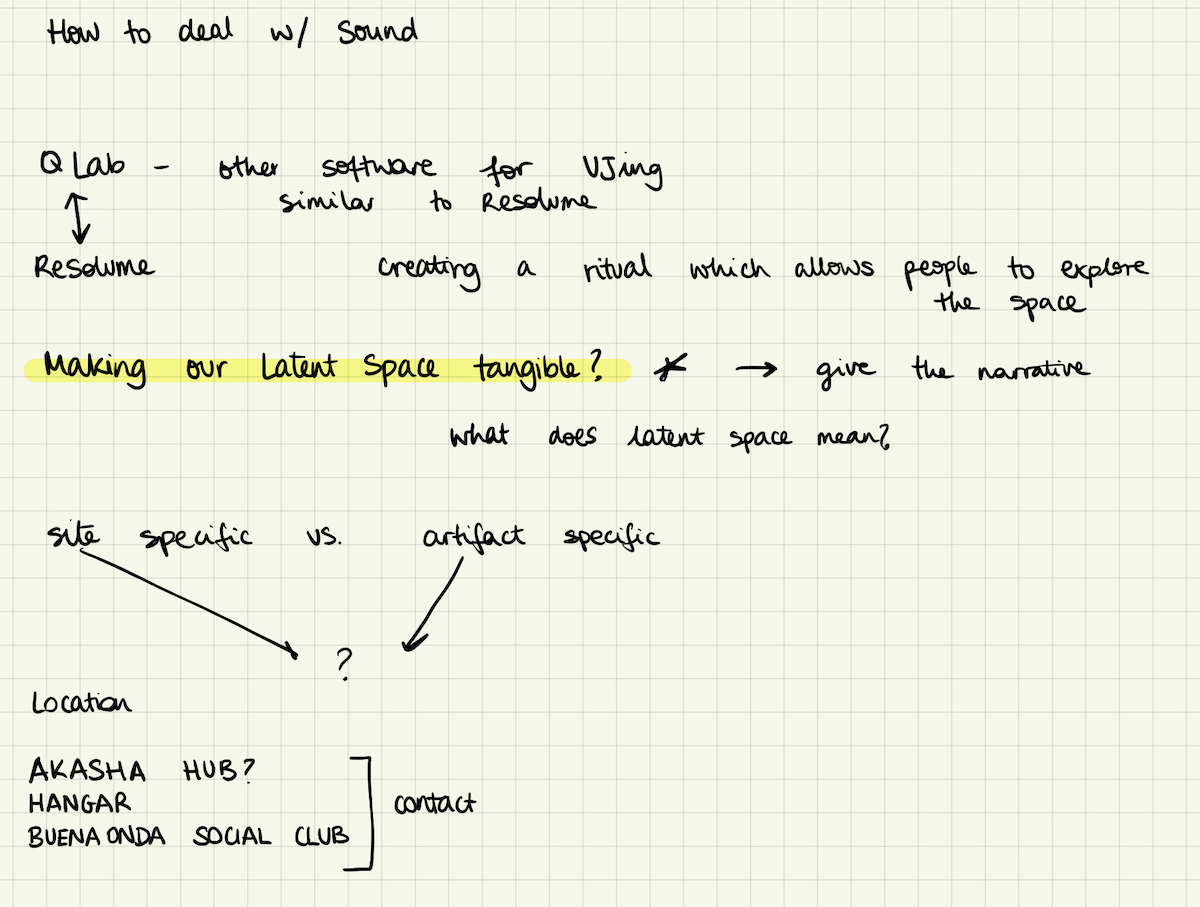 How to deal w/ Sound
Q Lab - other software for VJing
similar to Resolume
↕
Resolume
creating a ritual which allows people to explore
the space
Making our Latent Space tangible? * → give the narrative
what does latent space mean?
site specific vs. artifact specific
?
Location
AKASHA HUB?
HANGAR
BUENA ONDA SOCIAL CLUB
contact